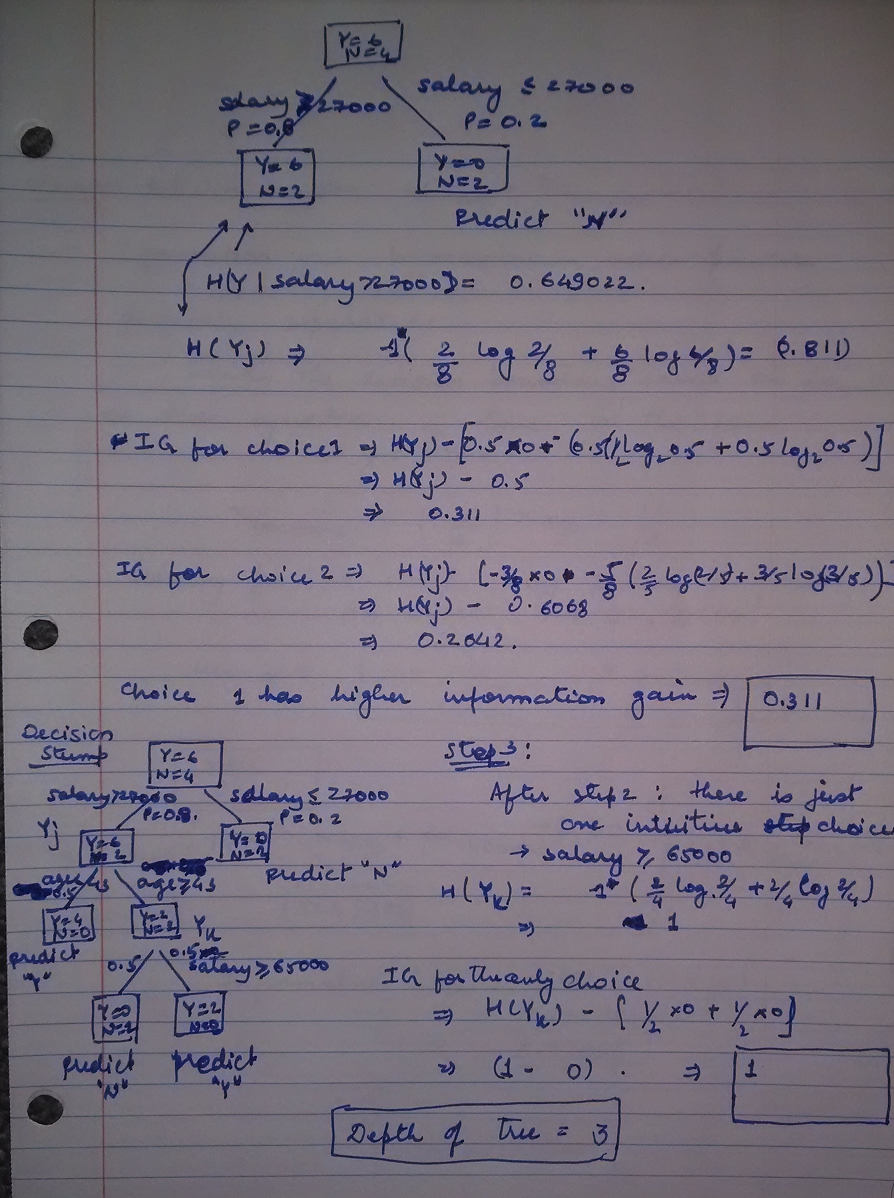 Y=6
N=4
salary > 27000
salary ≤ 27000
P=0.8
P=0.2
Y=6
N=2
Y=0
N=2
Predict "N"
H(Y | salary > 27000) = 0.649022.
H(Yj) ⇒ -1*( 2/8 log 2/8 + 6/8 log 6/8) = 0.811)
IG for choice 1 ⇒ H(Yj) - [0.5 x0 + (0.5(1/2 log₂ 0.5 + 0.5 log₂ 0.5)]
⇒ H(Yj) - 0.5
⇒ 0.311
IG for choice 2 ⇒ H(Yj) - [-3/8 x0 - 5/8 (2/5 log(2/5) + 3/5 log(3/5))]
⇒ H(Yj) - 0.6068
⇒ 0.2042.
Choice 1 has higher information gain ⇒ 0.311
Decision
Stump
Y=6
N=4
salary>27000
salary ≤ 27000
P=0.8.
P=0.2
Yj
Y=6
N=2
Y=0
N=2
predict "N"
age<43
age≥43
0.5
Y=4
N=0
Y=2
N=2
YK
predict
"Y"
0.5
0.5
salary ≥65000
Y=0
N=2
Y=2
N=0
predict
"N"
predict
"Y"
Step 3:
After step 2 : there is just
one intuitive choice
→ salary ≥ 65000
H(YK) = -1* (2/4 log 2/4 + 2/4 log 2/4)
⇒ 1
IG for the only choice
⇒ H(YK) - [1/2 x0 + 1/2 x0]
⇒ (1 - 0) . ⇒ 1
Depth of Tree = 3